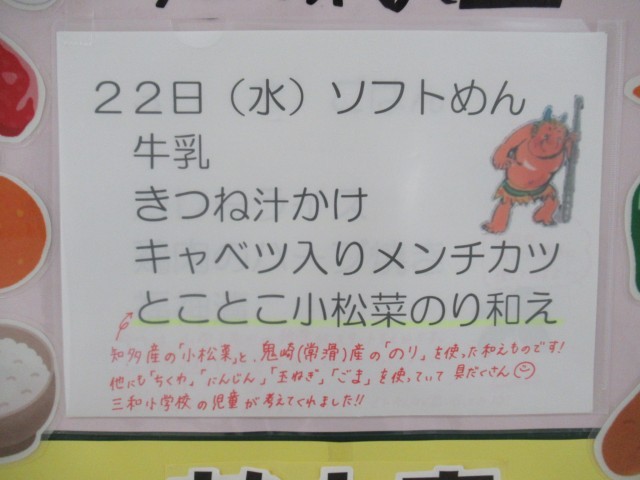 22日（水）ソフトめん
牛乳
きつね汁かけ
キャベツ入りメンチカツ
とことこ小松菜のり和え
知多産の「小松菜」と、鬼崎(常滑)産の「のり」を使った和えものです!
他にも「ちくわ」「にんじん」「玉ねぎ」「ごま」を使っていて 具だくさん
三和小学校の児童が考えてくれました!!